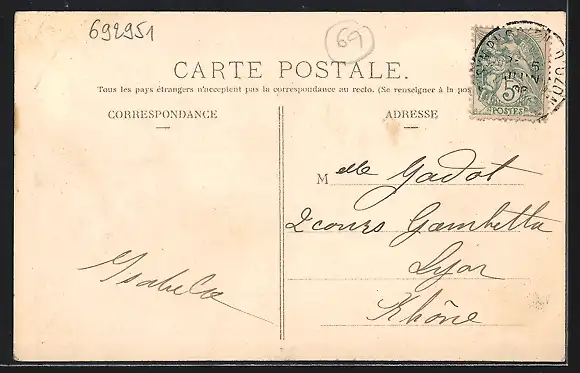 692951
69
CARTE POSTALE.
Tous les pays étrangers n'acceptent pas la correspondance au recto. (Se renseigner à la pos
CORRESPONDANCE
ADRESSE
Melle Gadot
2 cours Gambetta
Lyon
Rhône
Isabelle
5
POSTES
5
JUIN